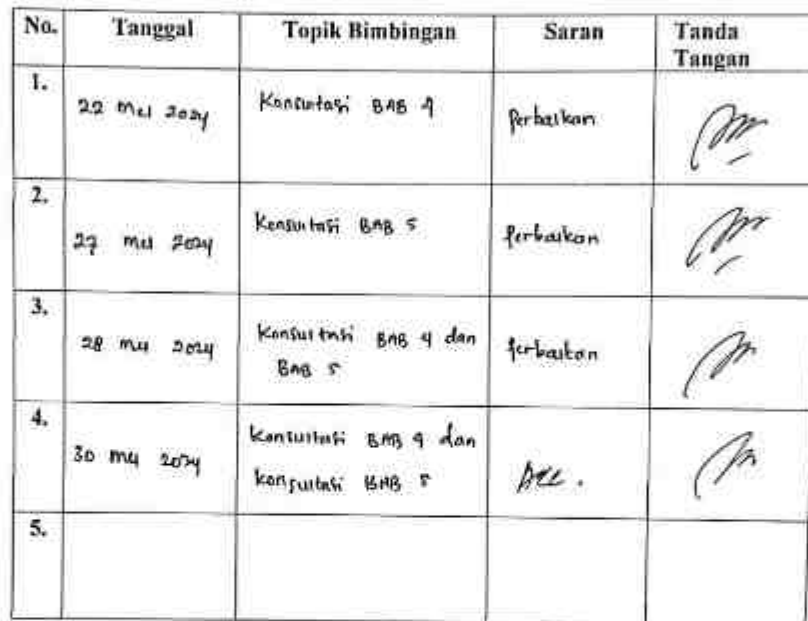 No. Tanggal Topik Bimbingan Saran Tanda Tangan
1. 22 Mei 2024 Konsultasi BAB 4 Perbaikan
2. 27 Mei 2024 Konsultasi BAB 5 Perbaikan
3. 28 Mei 2024 Konsultasi BAB 4 dan Perbaikan
BAB 5
4. 30 Mei 2024 Konsultasi BAB 4 dan
konsultasi BAB 5 Acc.
5.